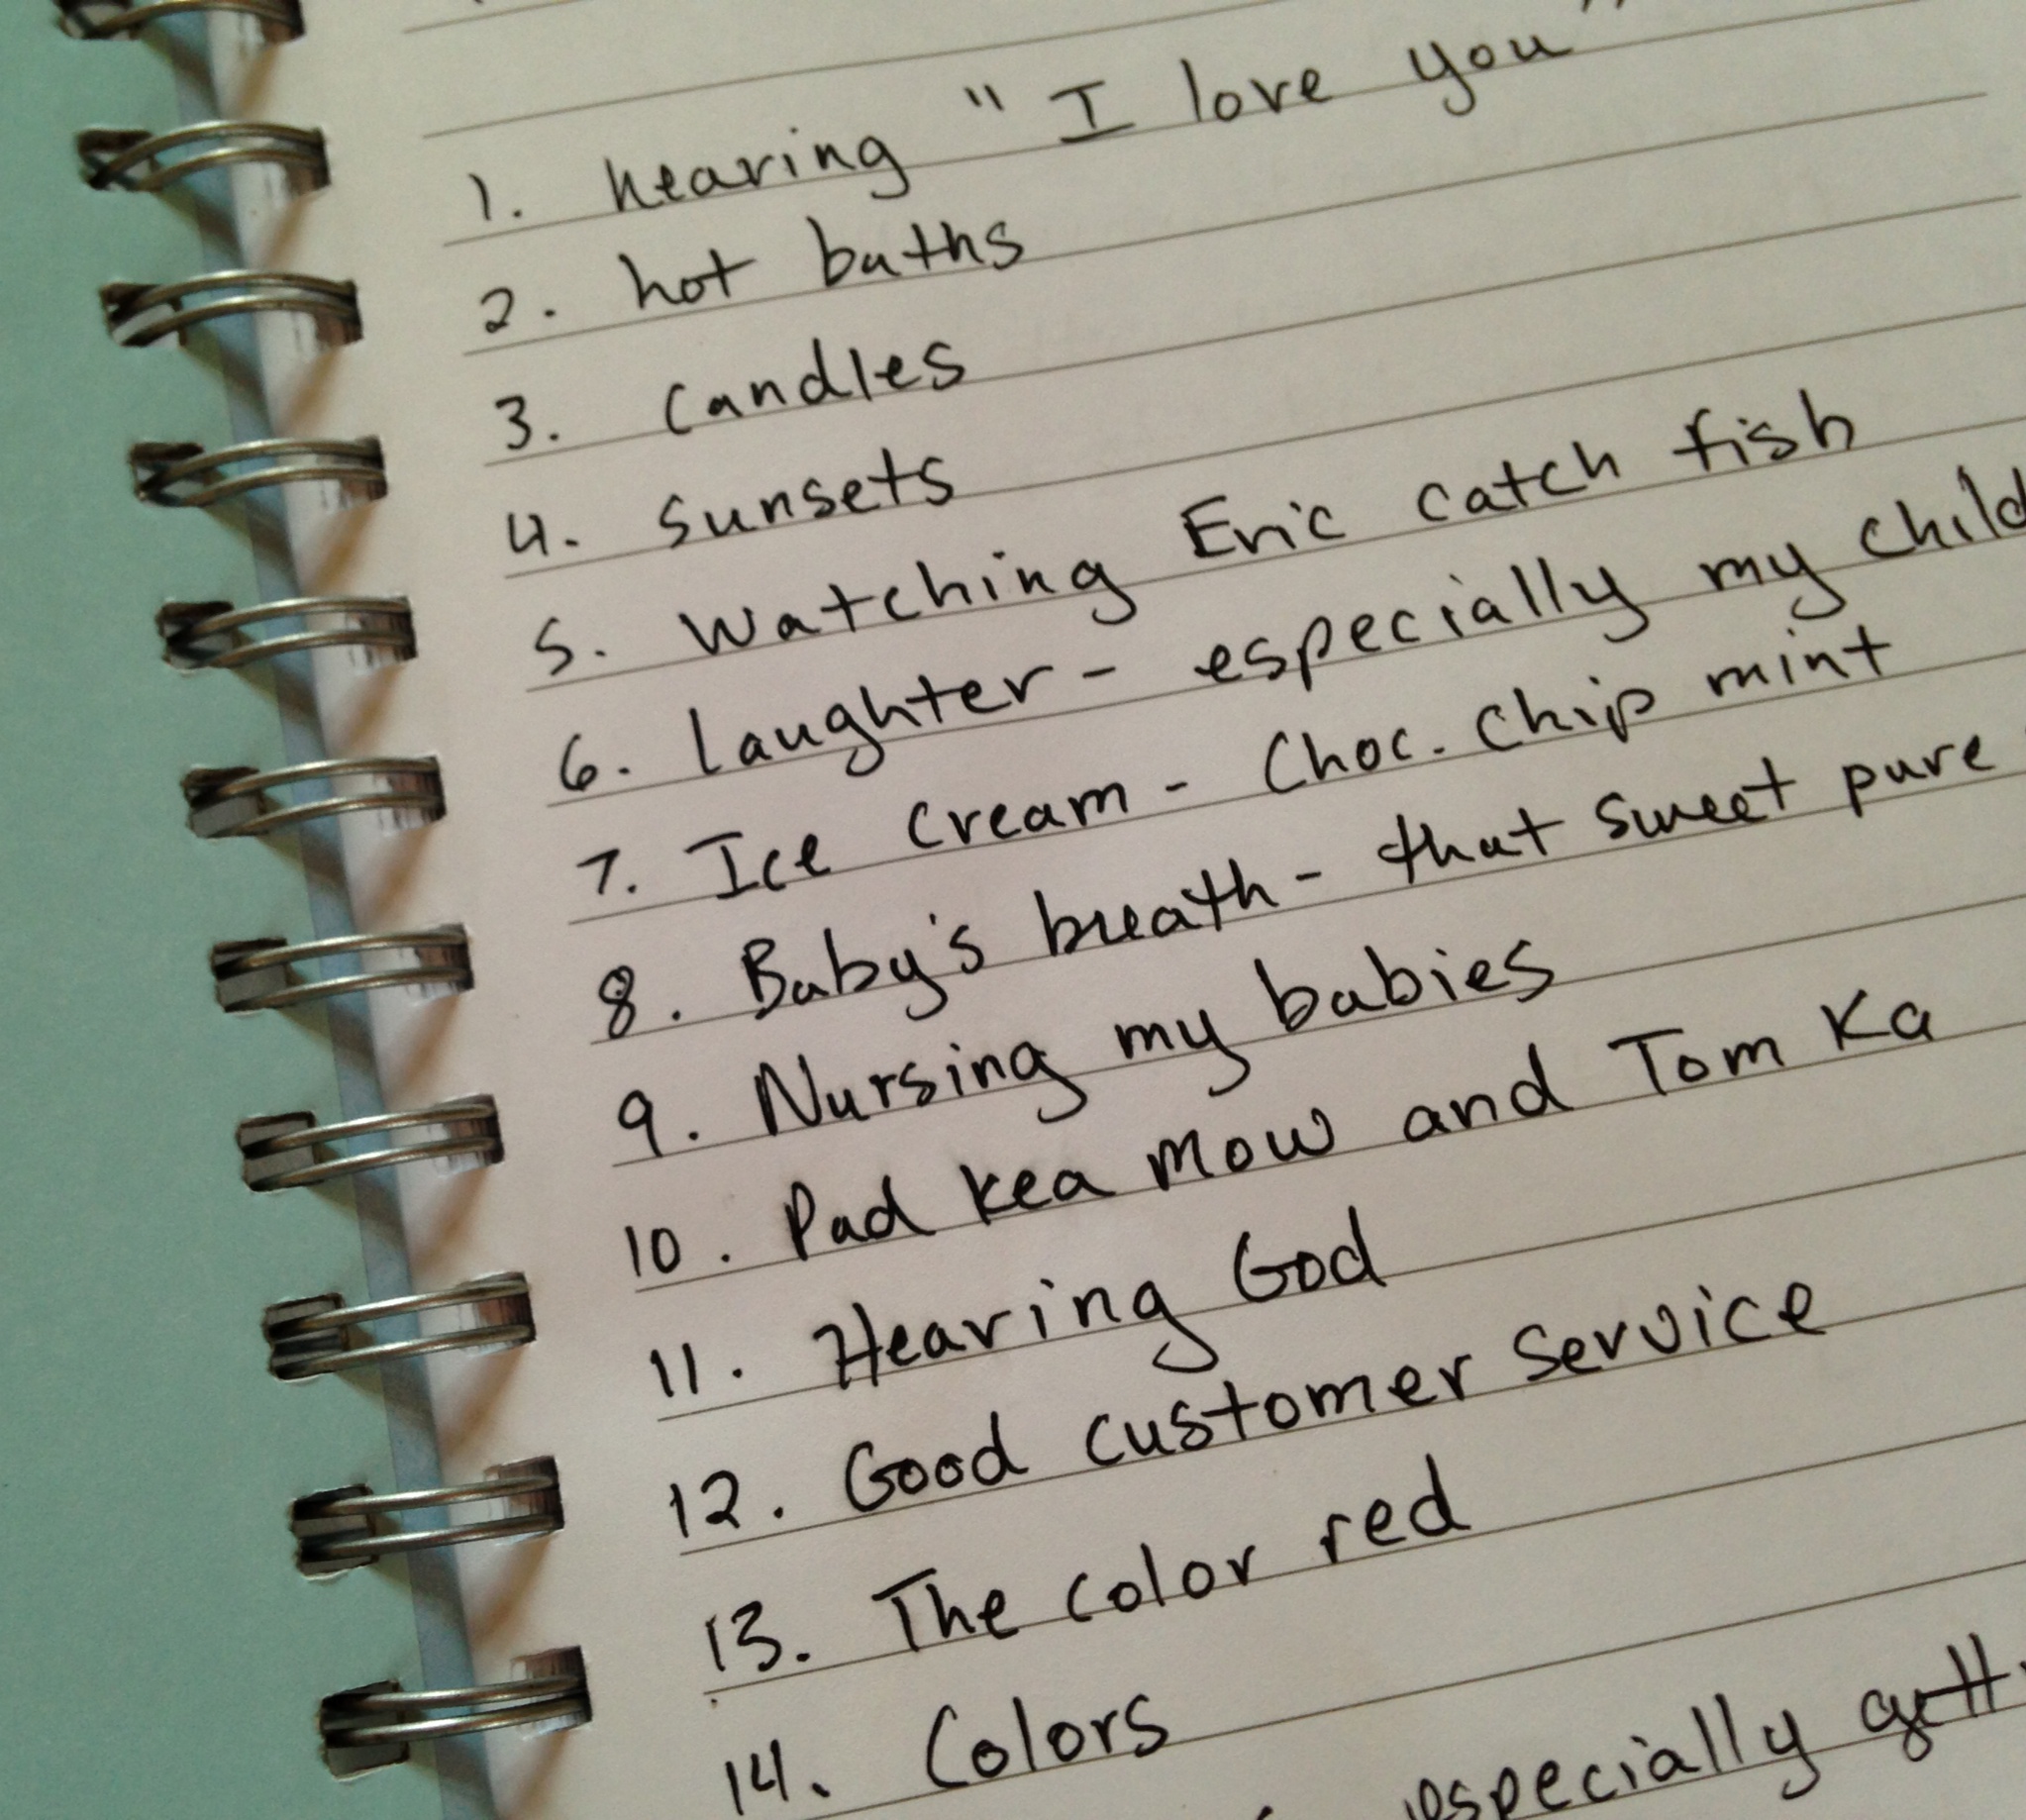 1. hearing "I love you"
2. hot baths
3. Candles
4. Sunsets
5. Watching Eric catch fish
6. laughter - especially my child
7. Ice Cream - Choc. Chip mint
8. Baby's breath - that sweet pure
9. Nursing my babies
10. Pad kea mow and Tom Ka
11. Hearing God
12. Good customer service
13. The color red
14. Colors
especially